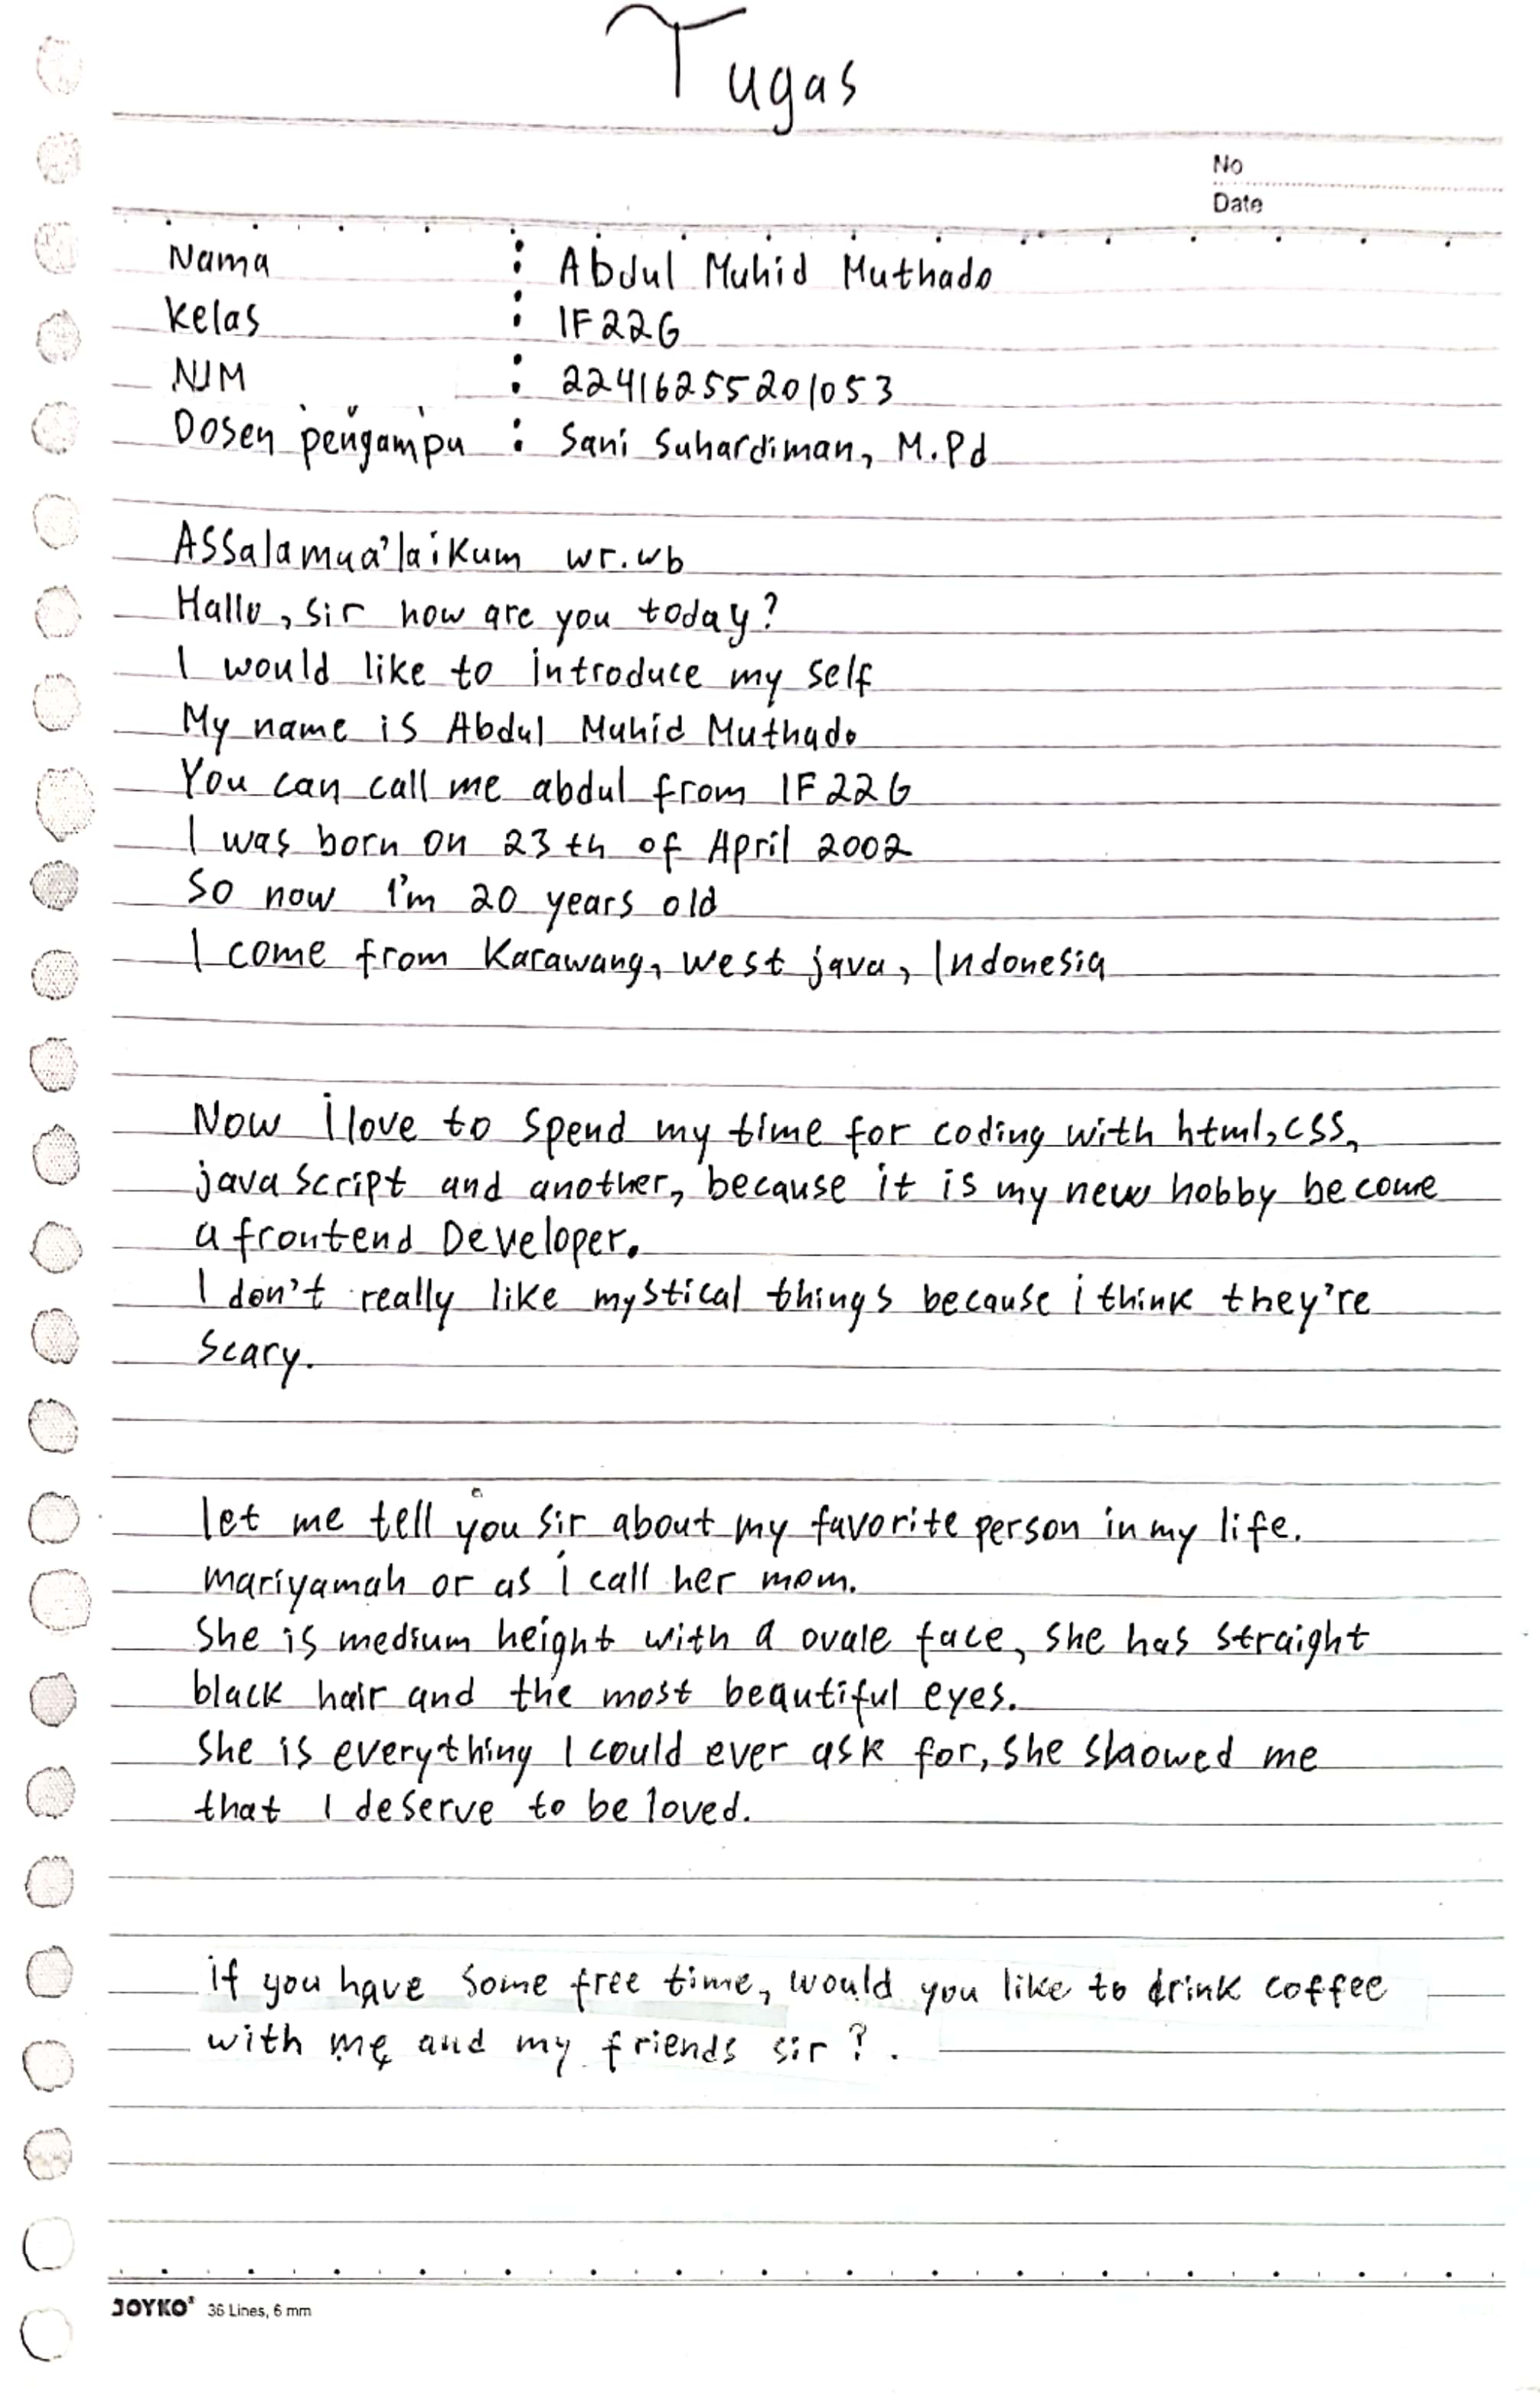 Tugas
No
Date
Nama : Abdul Muhid Muthado
Kelas : IF22G
NIM : 22416255201053
Dosen pengampu : Sani Suhardiman, M.Pd
Assalamua'laikum wr.wb
Hallo, sir how are you today?
I would like to introduce my self
My name is Abdul Muhid Muthado
You can call me abdul from IF22G
I was born on 23th of April 2002
So now I'm 20 years old
I come from Karawang, west java, Indonesia
Now i love to spend my time for coding with html, css,
java script and another, because it is my new hobby become
a frontend Developer.
I don't really like mystical things because i think they're
scary.
let me tell you sir about my favorite person in my life.
mariyamah or as i call her mom.
She is medium height with a ovale face, she has straight
black hair and the most beautiful eyes.
She is everything I could ever ask for, she showed me
that I deserve to be loved.
if you have some free time, would you like to drink coffee
with me and my friends sir ? .
JOYKO 36 Lines, 6 mm